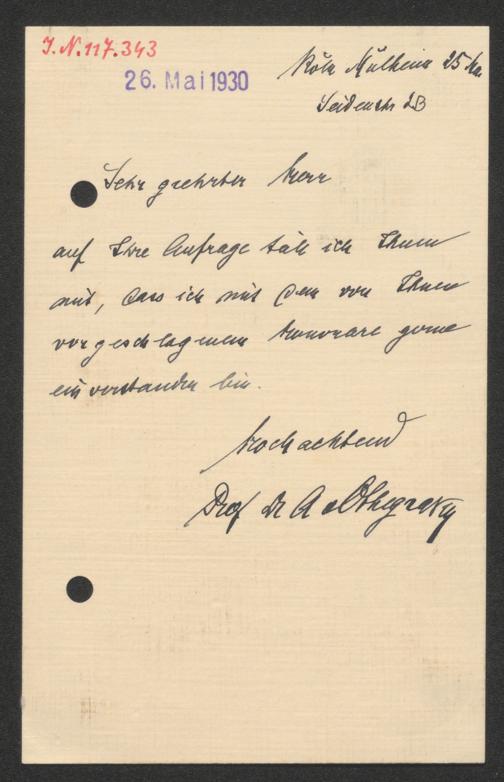 I.N. 117.343
26. Mai 1930
Köln Mülheim 25
Seidenstr
Sehr geehrter Herr
auf Ihre Anfrage teile ich Ihnen
mit, dass ich mit dem von Ihnen
vorgeschlagenen Honorare gerne
einverstanden bin.
Hochachtend
Prof Dr A v Othegraven